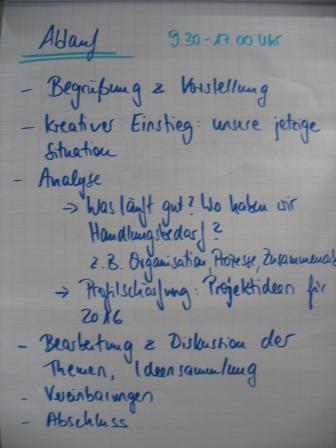 Ablauf 9.30-17.00 Uhr
- Begrüßung & Vorstellung
- Kreativer Einstieg: unsere jetzige
Situation
- Analyse
→ Was läuft gut? Wo haben wir
Handlungsbedarf?
z.B. Organisation, Prozesse, Zusammena
→ Profilschärfung: Projektideen für
2016
- Bearbeitung & Diskussion der
Themen, Ideensammlung
- Vereinbarungen
- Abschluss